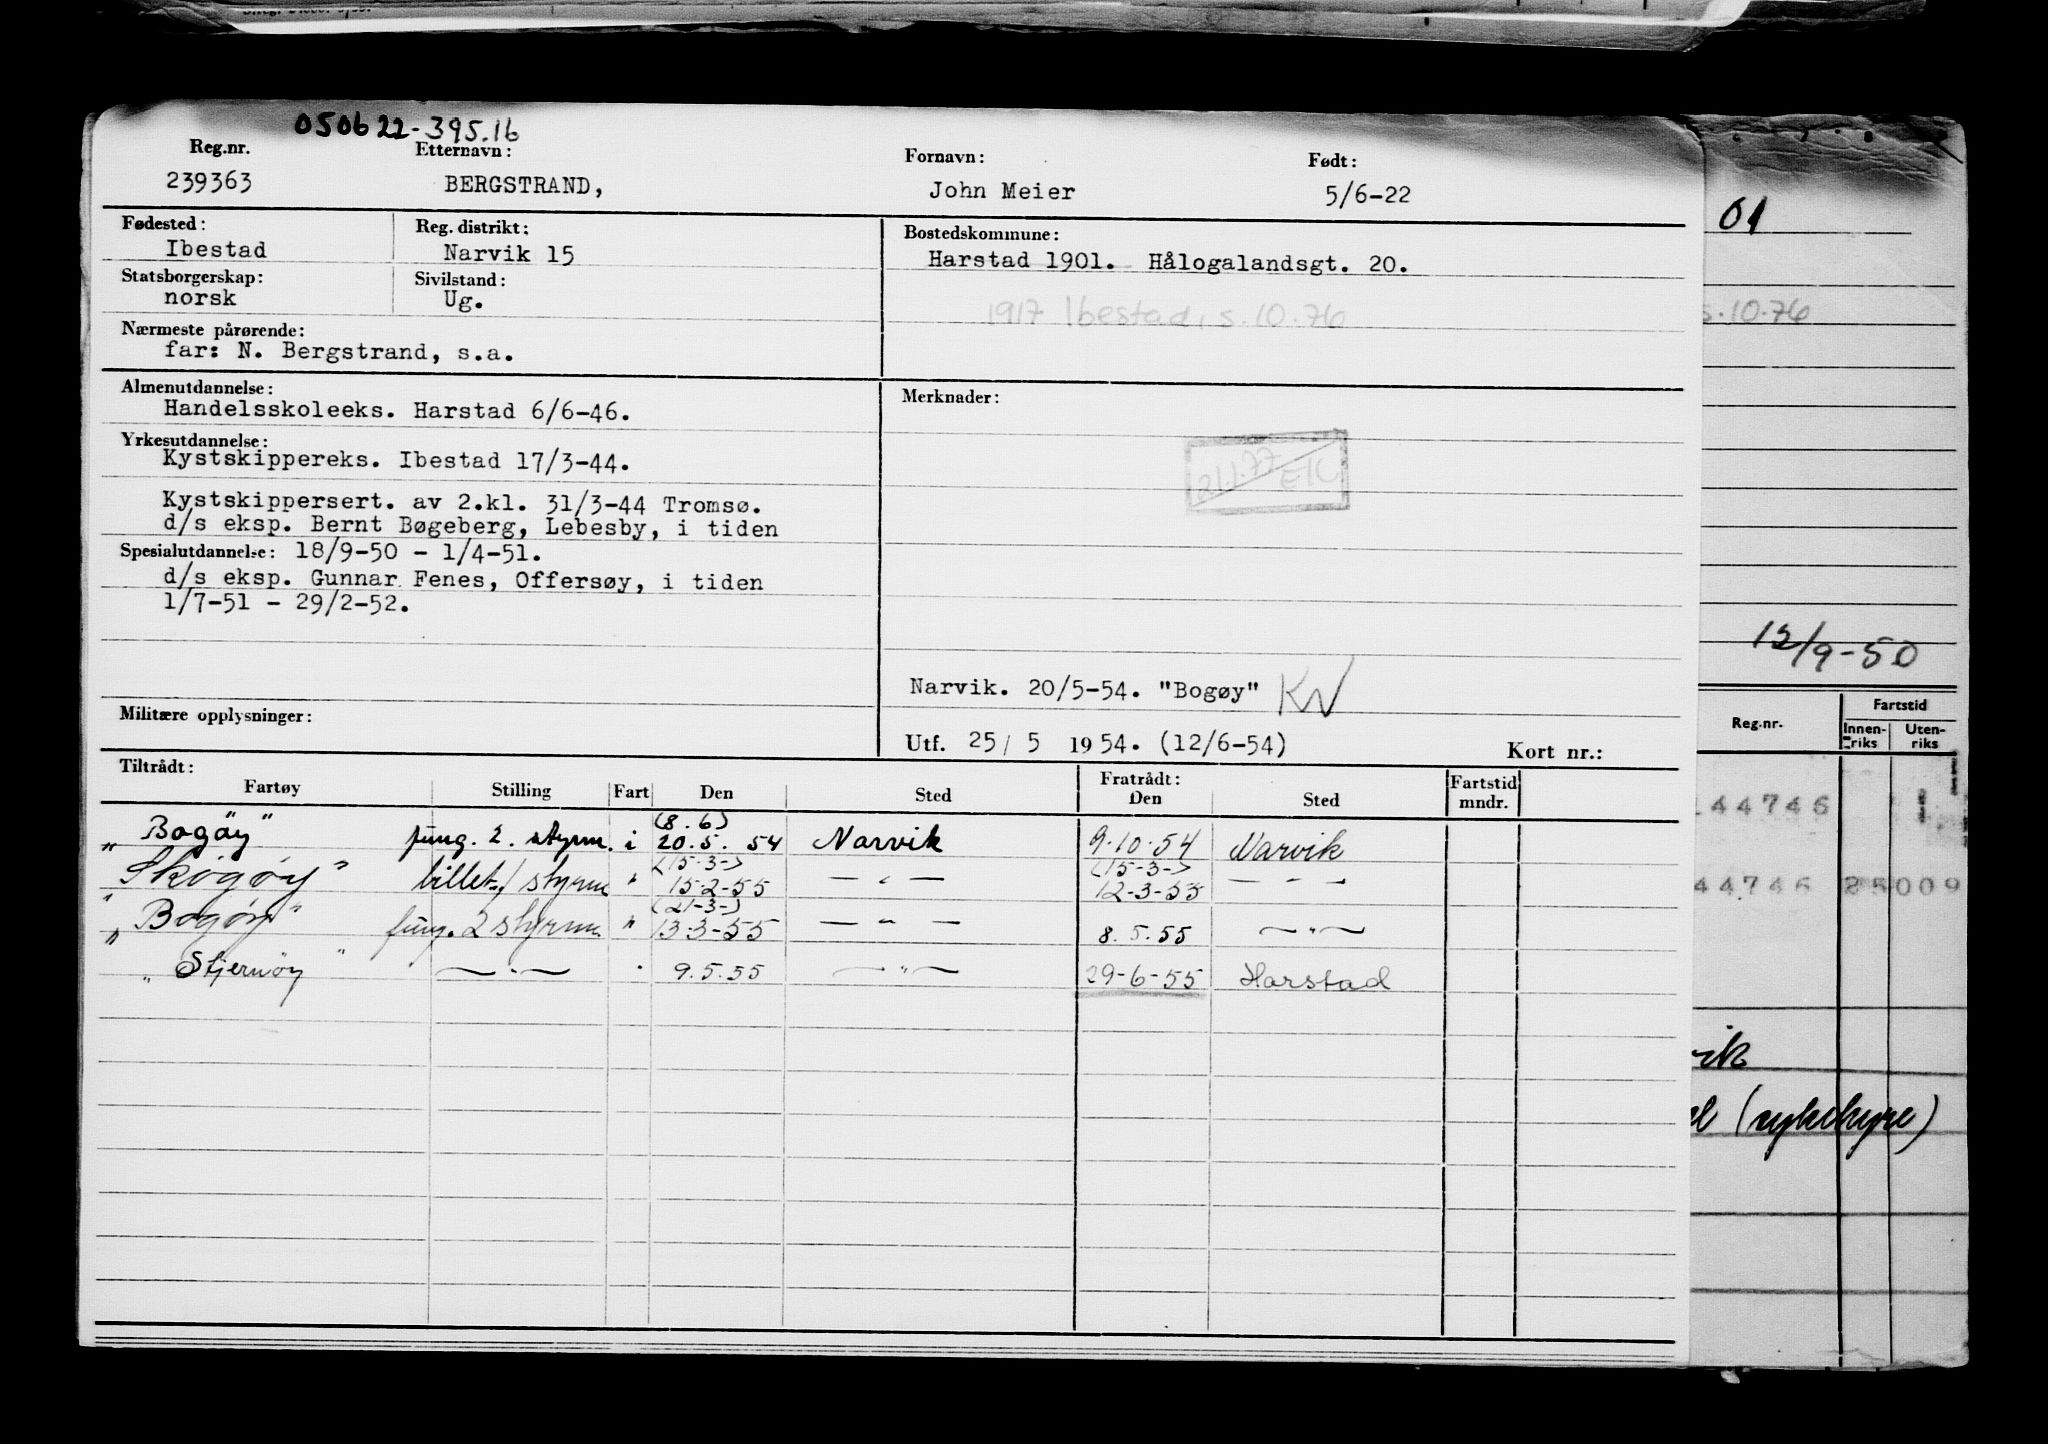 050622-395.16
Reg.nr. Etternavn: Fornavn: Født:
239363 BERGSTRAND, John Meier 5/6-22
Fødested: Reg. distrikt: Bostedskommune:
Ibestad Narvik 15 Harstad 1901. Hålogalandsgt. 20.
Statsborgerskap: Sivilstand:
norsk Ug.
1917 Ibestad, s. 10.76
Nærmeste pårørende:
far: N. Bergstrand, s.a.
Almenutdannelse: Merknader:
Handelsskoleeks. Harstad 6/6-46.
Yrkesutdannelse:
Kystskippereks. Ibestad 17/3-44.
21.1.77
Kystskippersert. av 2.kl. 31/3-44 Tromsø.
d/s eksp. Bernt Bøgeberg, Lebesby, i tiden
Spesialutdannelse: 18/9-50 - 1/4-51.
d/s eksp. Gunnar Fenes, Offersøy, i tiden
1/7-51 - 29/2-52.
Narvik. 20/5-54. "Bogøy" KN
Militære opplysninger:
Utf. 25/ 5 1954. (12/6-54) Kort nr.:
Tiltrådt: Fratrådt:
Fartøy Stilling Fart Den Sted Den Sted Fartstid mndr.
(8.6)
"Bogøy" fung. 2. styrm. i 20.5. 54 Narvik 9.10.54 Narvik
(15-3-) (15-3-)
"Skogøy" billet./styrm " 15-2-55 — " — 12-3-55 — " —
(21-3-)
"Bogøy" fung. 2 styrm. " 13-3-55 — " — 8.5.55 — " —
"Stjernøy" — " — " 9.5.55 — " — 29-6-55 Harstad
01
s.10.76
12/9-50
Reg.nr. Fartstid
Innenriks Utenriks
144746 1
44746 85009
vik
(sykehyre)